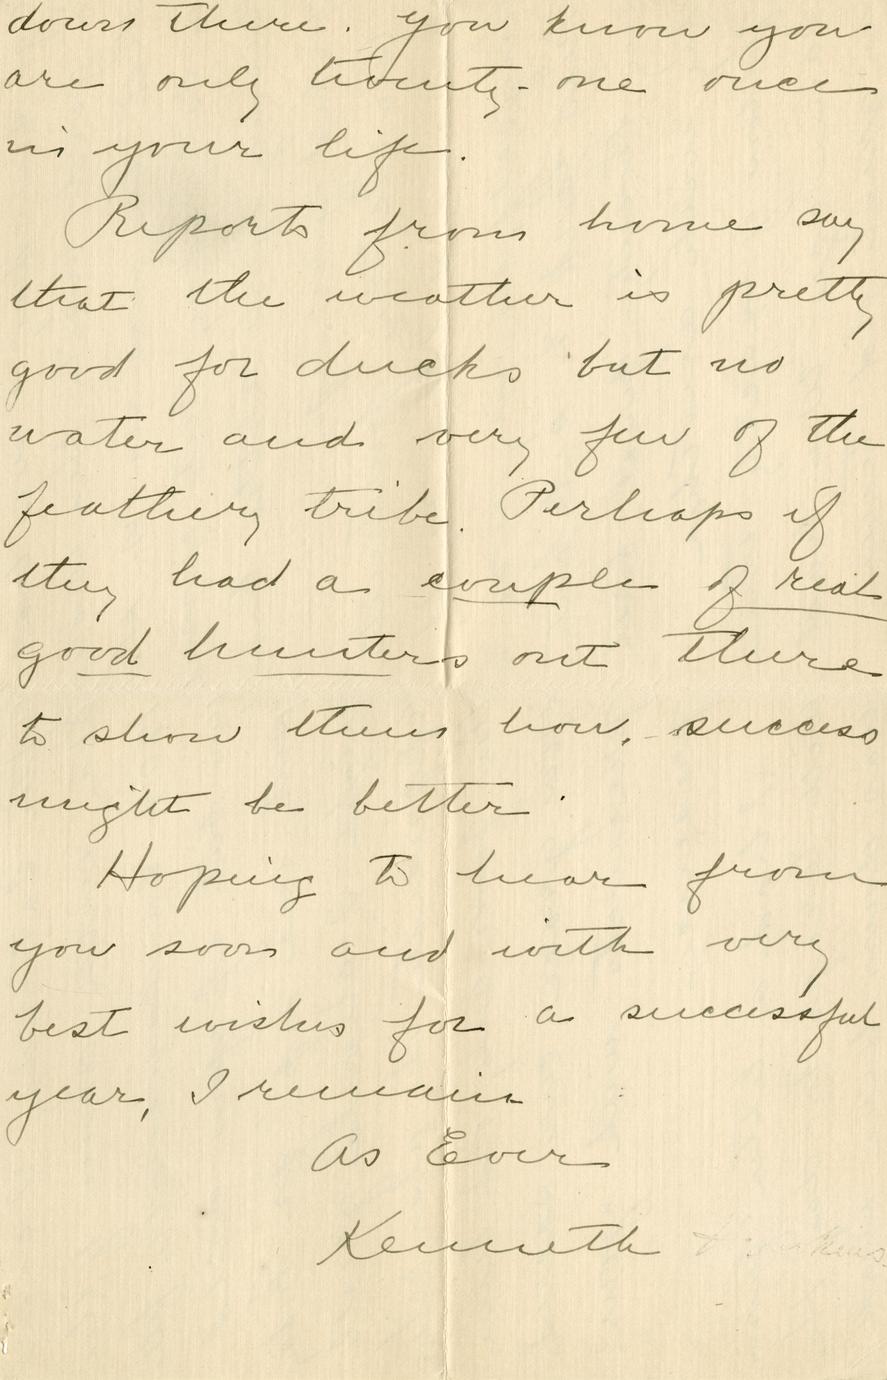 down there. You know you
are only twenty-one once
in your life.
Reports from home say
that the weather is pretty
good for ducks but no
water and very few of the
feathery tribe. Perhaps if
they had a couple of real
good hunters out there
to show them how, success
might be better.
Hoping to hear from
you soon and with very
best wishes for a successful
year, I remain
As Ever
Kenneth